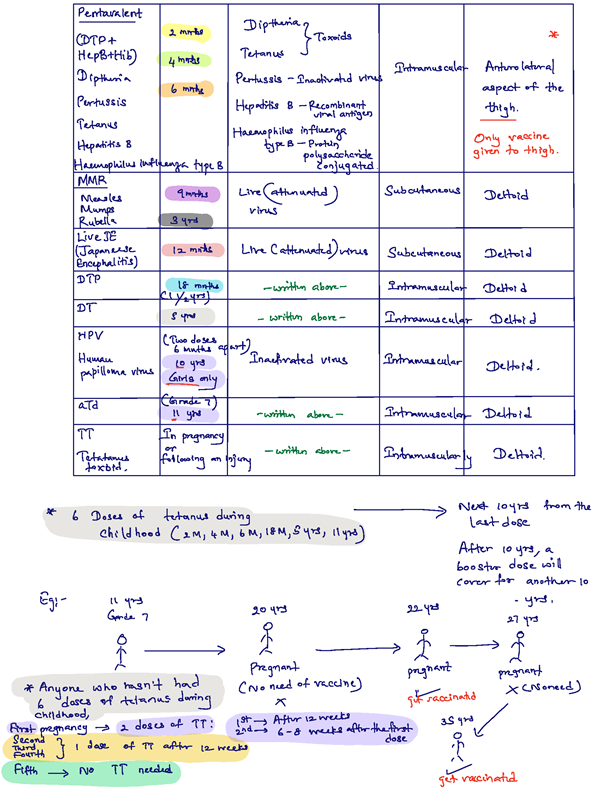 Pentavalent
(DTP + HepB+Hib)
Diptheria
Pertussis
Tetanus
Hepatitis B
Haemophilus influenza type B
2 mnths
4 mnths
6 mnths
Diptheria
Tetanus } Toxoids
Pertussis - Inactivated virus
Hepatitis B - Recombinant viral antigen
Haemophilus influenza type B - Protein polysaccharide conjugated.
Intramuscular
*
Anterolateral aspect of the thigh.
Only vaccine given to thigh.
MMR
Measles
Mumps
Rubella
9 mnths
3 yrs
Live (attenuated) virus
Subcutaneous
Deltoid
Live JE
(Japaneese Encephalitis)
12 mnths
Live (attenuated) virus
Subcutaneous
Deltoid
DTP
18 mnths
(1 1/2 yrs)
- written above -
Intramuscular
Deltoid
DT
5 yrs
- written above -
Intramuscular
Deltoid
HPV
Human papilloma virus
(Two doses 6 mnths apart)
10 yrs
Girls only
Inactivated virus
Intramuscular
Deltoid.
aTd
(Grade 7)
11 yrs
- written above -
Intramuscular
Deltoid
TT
Tetatanus toxoid.
In pregnancy or following an injury
- written above -
Intramuscularly
Deltoid.
* 6 Doses of tetanus during
childhood (2M, 4M, 6M, 18M, 5 yrs, 11 yrs)
Next 10 yrs from the
last dose
After 10 yrs, a
booster dose will
cover for another 10
- yrs.
Eg:-
11 yrs
Grade 7
20 yrs
pregnant
(No need of vaccine)
×
22 yrs
pregnant
get vaccinated
27 yrs
pregnant
× (No need)
35 yrs
get vaccinated
* Anyone who hasn't had
6 doses of tetanus during
childhood,
First pregnancy → 2 doses of TT:
1st → After 12 weeks
2nd → 6-8 weeks after the first
dose
Second
Third
Fourth } 1 dose of TT after 12 weeks
Fifth → No TT needed